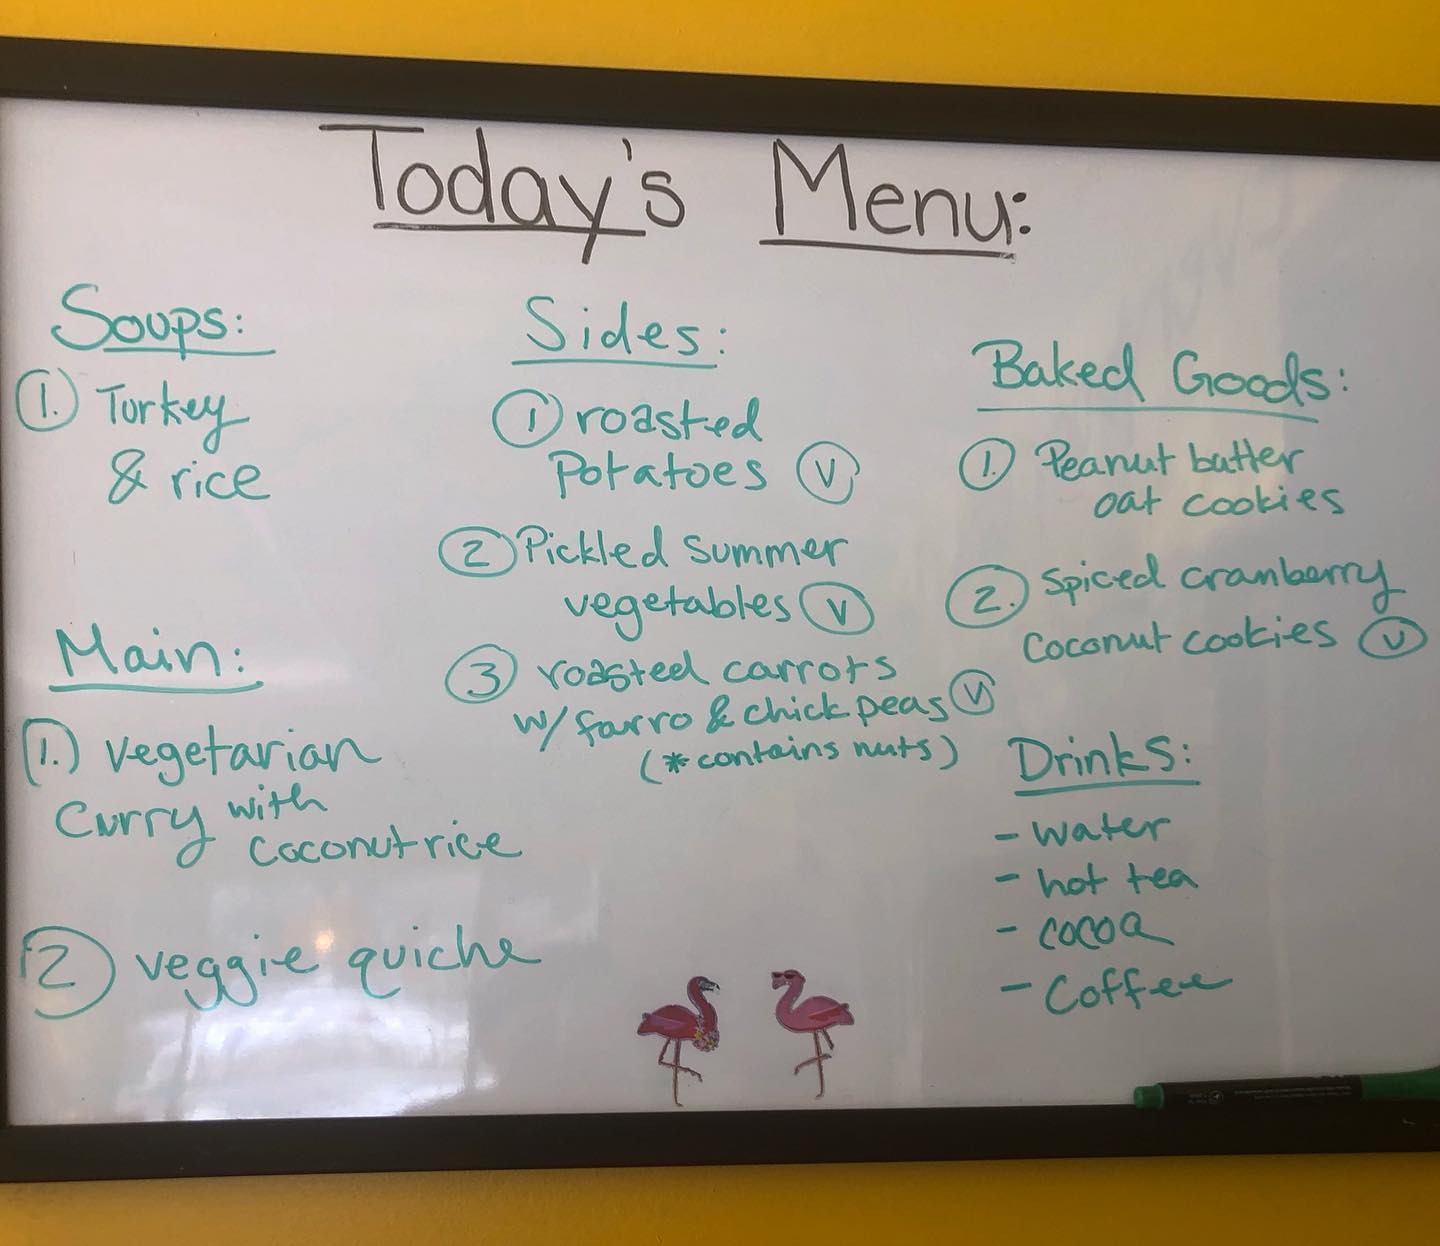 Today's Menu:
Soups:
1. Turkey
& rice
Main:
1. vegetarian
Curry with
coconut rice
2 veggie quiche
Sides:
1 roasted
potatoes V
2 Pickled summer
vegetables V
3 roasted carrots
w/ farro & chick peas V
(*contains nuts)
Baked Goods:
1. Peanut butter
oat cookies
2. spiced cranberry
coconut cookies V
Drinks:
- water
- hot tea
- cocoa
- coffee